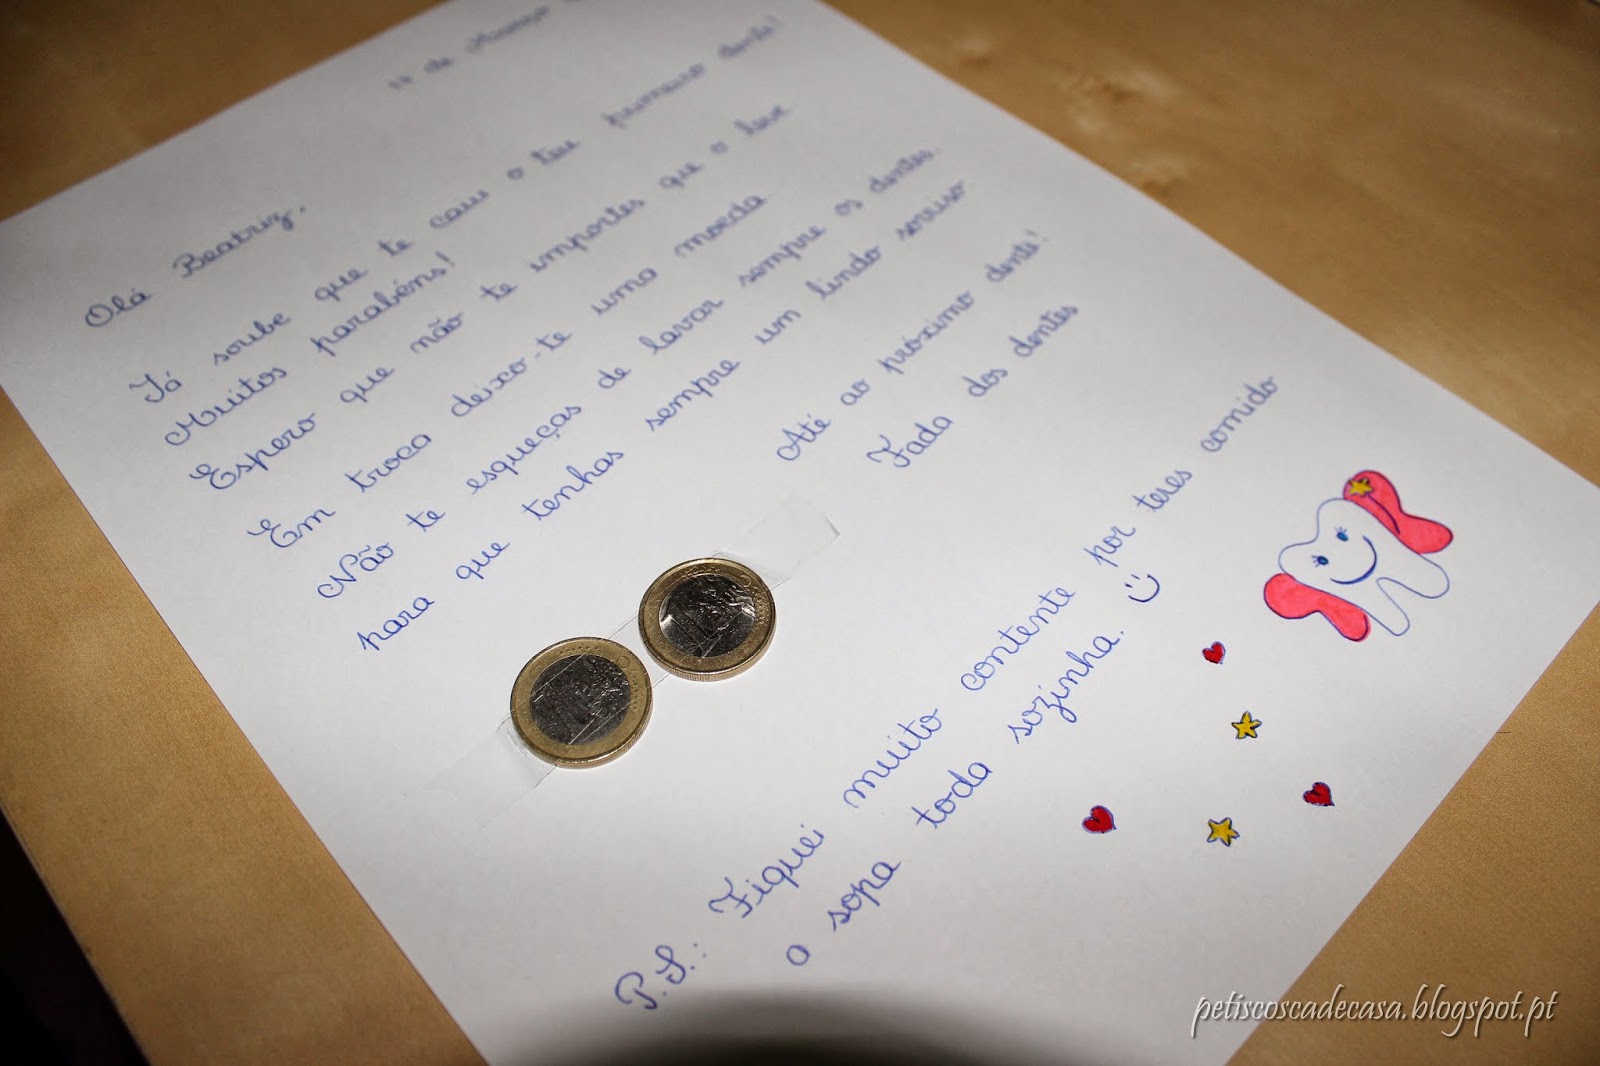 de Março
Olá Beatriz,
Já soube que te caiu o teu primeiro dente!
Muitos parabéns!
Espero que não te importes que o leve
Em troca deixo-te uma moeda
Não te esqueças de lavar sempre os dentes,
para que tenhas sempre um lindo sorriso
Até ao próximo dente!
Fada dos dentes
P.S.: Fiquei muito contente por teres comido
a sopa toda sozinha. :)
petiscoscadecasa.blogspot.pt